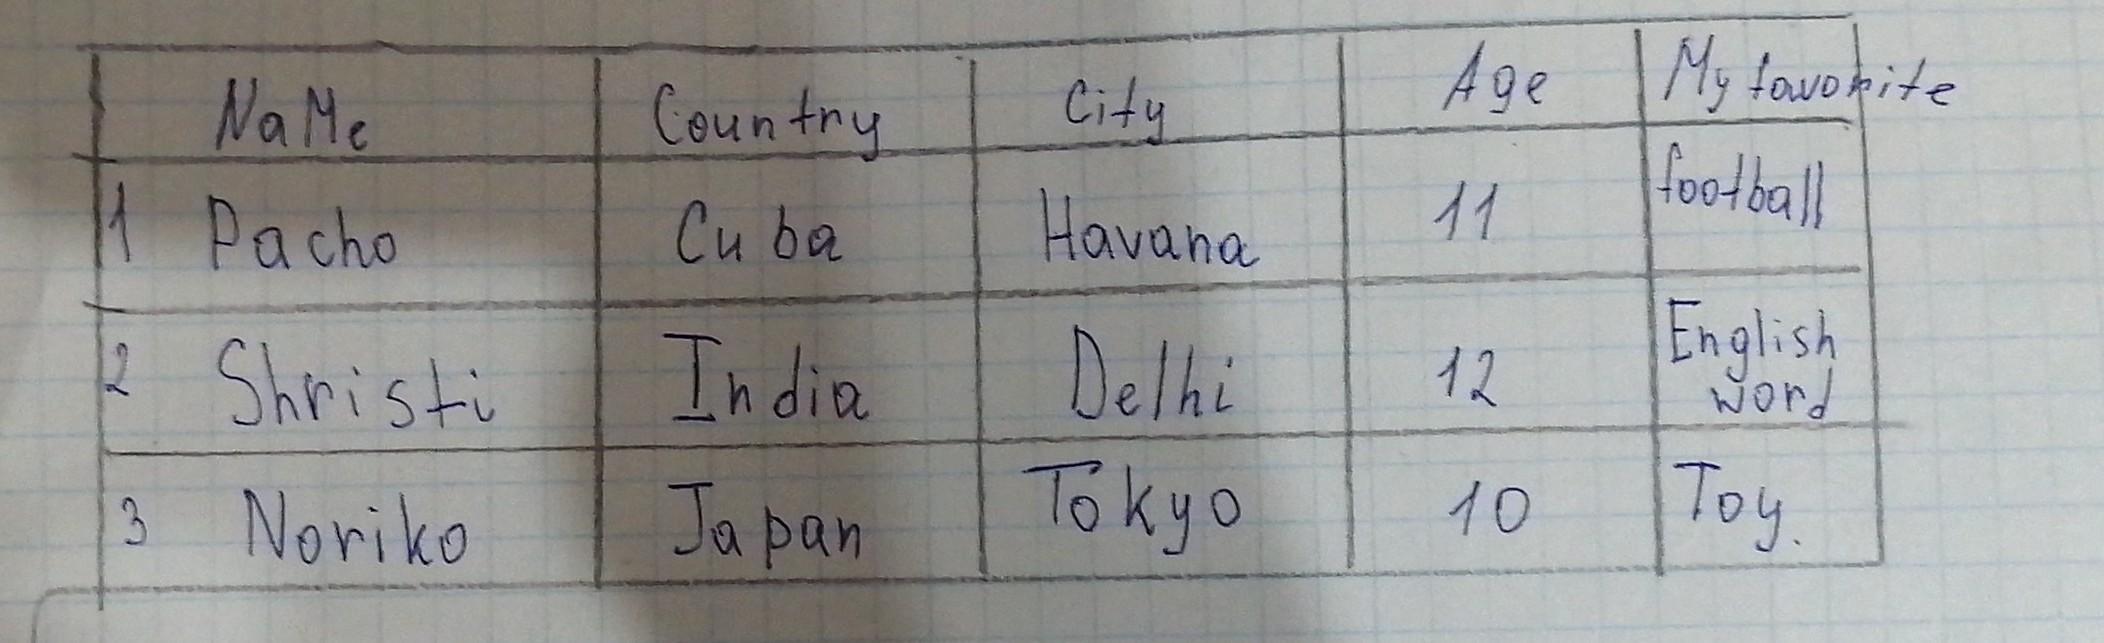 NaMe Country City Age My favorite
1 Pacho Cuba Havana 11 football
2 Shristi India Delhi 12 English word
3 Noriko Japan Tokyo 10 Toy.